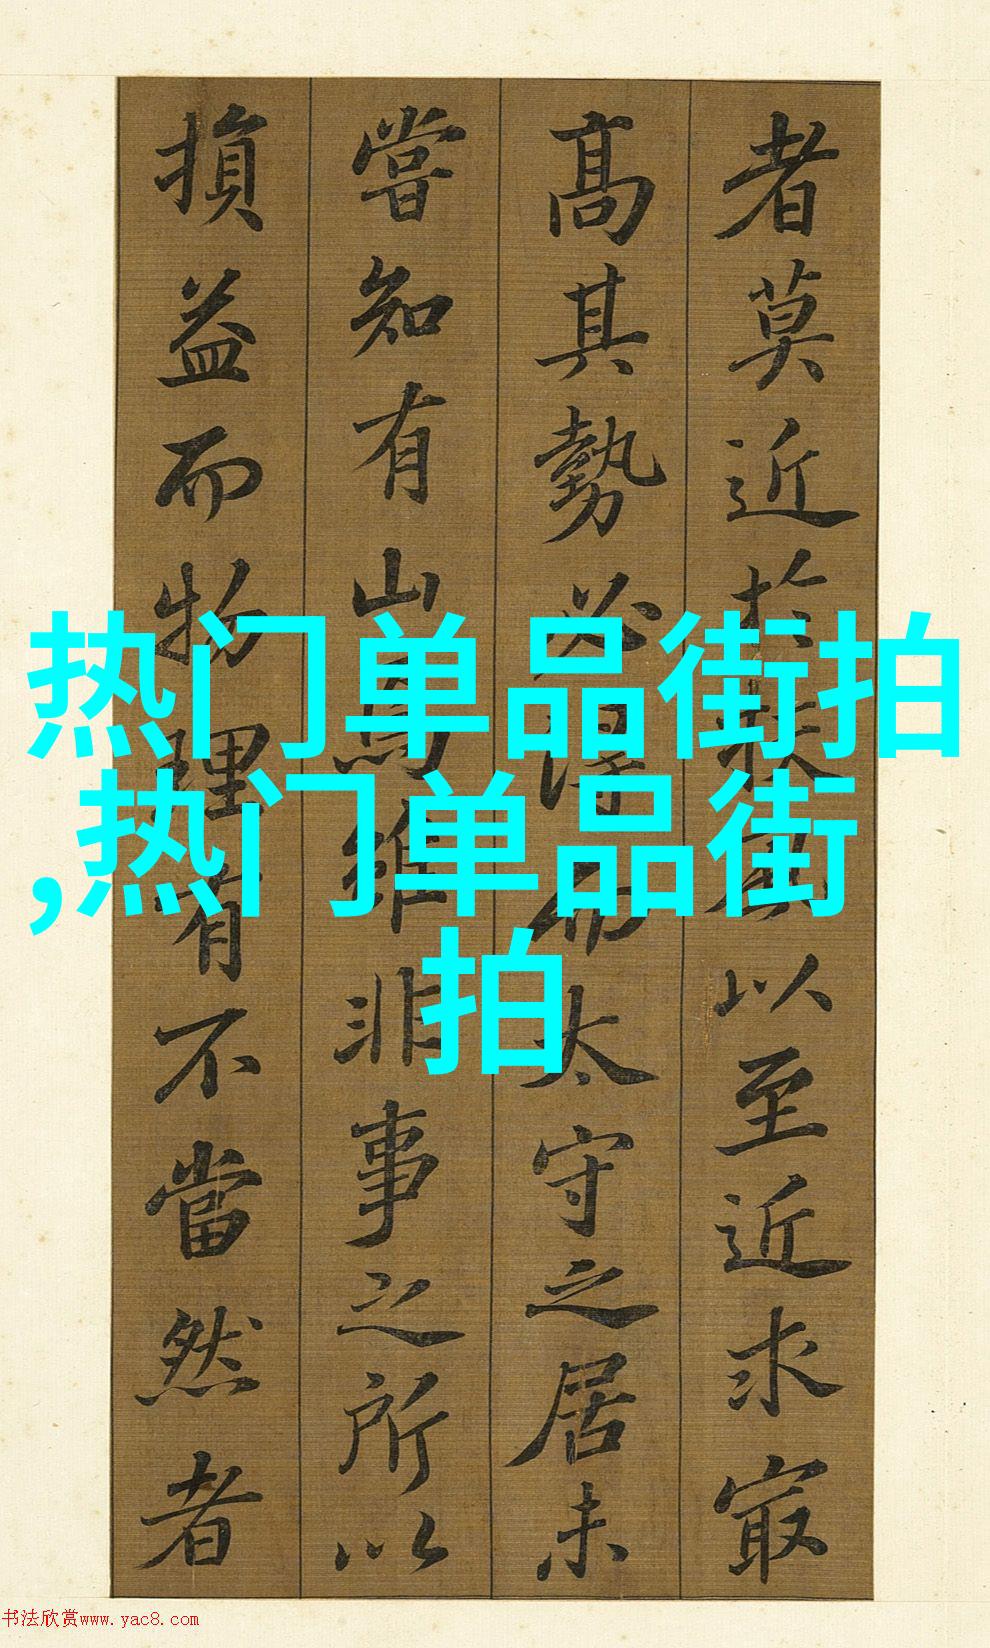 者莫近於扶風以至近求㝡
高其勢必得而太守之居未
嘗知有山焉維非事之所以
損益而物理有不當然者
热门单品街拍
,热门单品街
拍
书法欣赏www.yac8.com